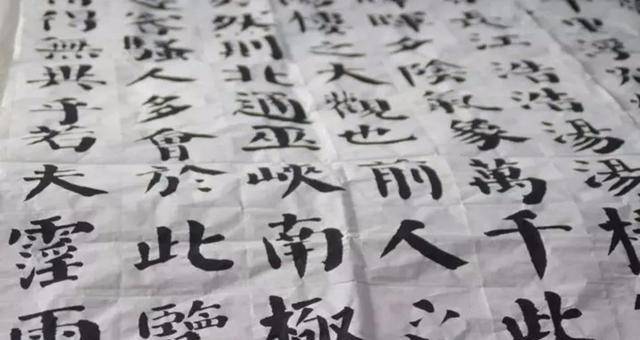 長江浩浩湯湯
暉夕陰氣象萬千此
樓之大觀也前人之
然則北通巫峽南極
客騷人多會於此覽
得無異乎若夫霪雨